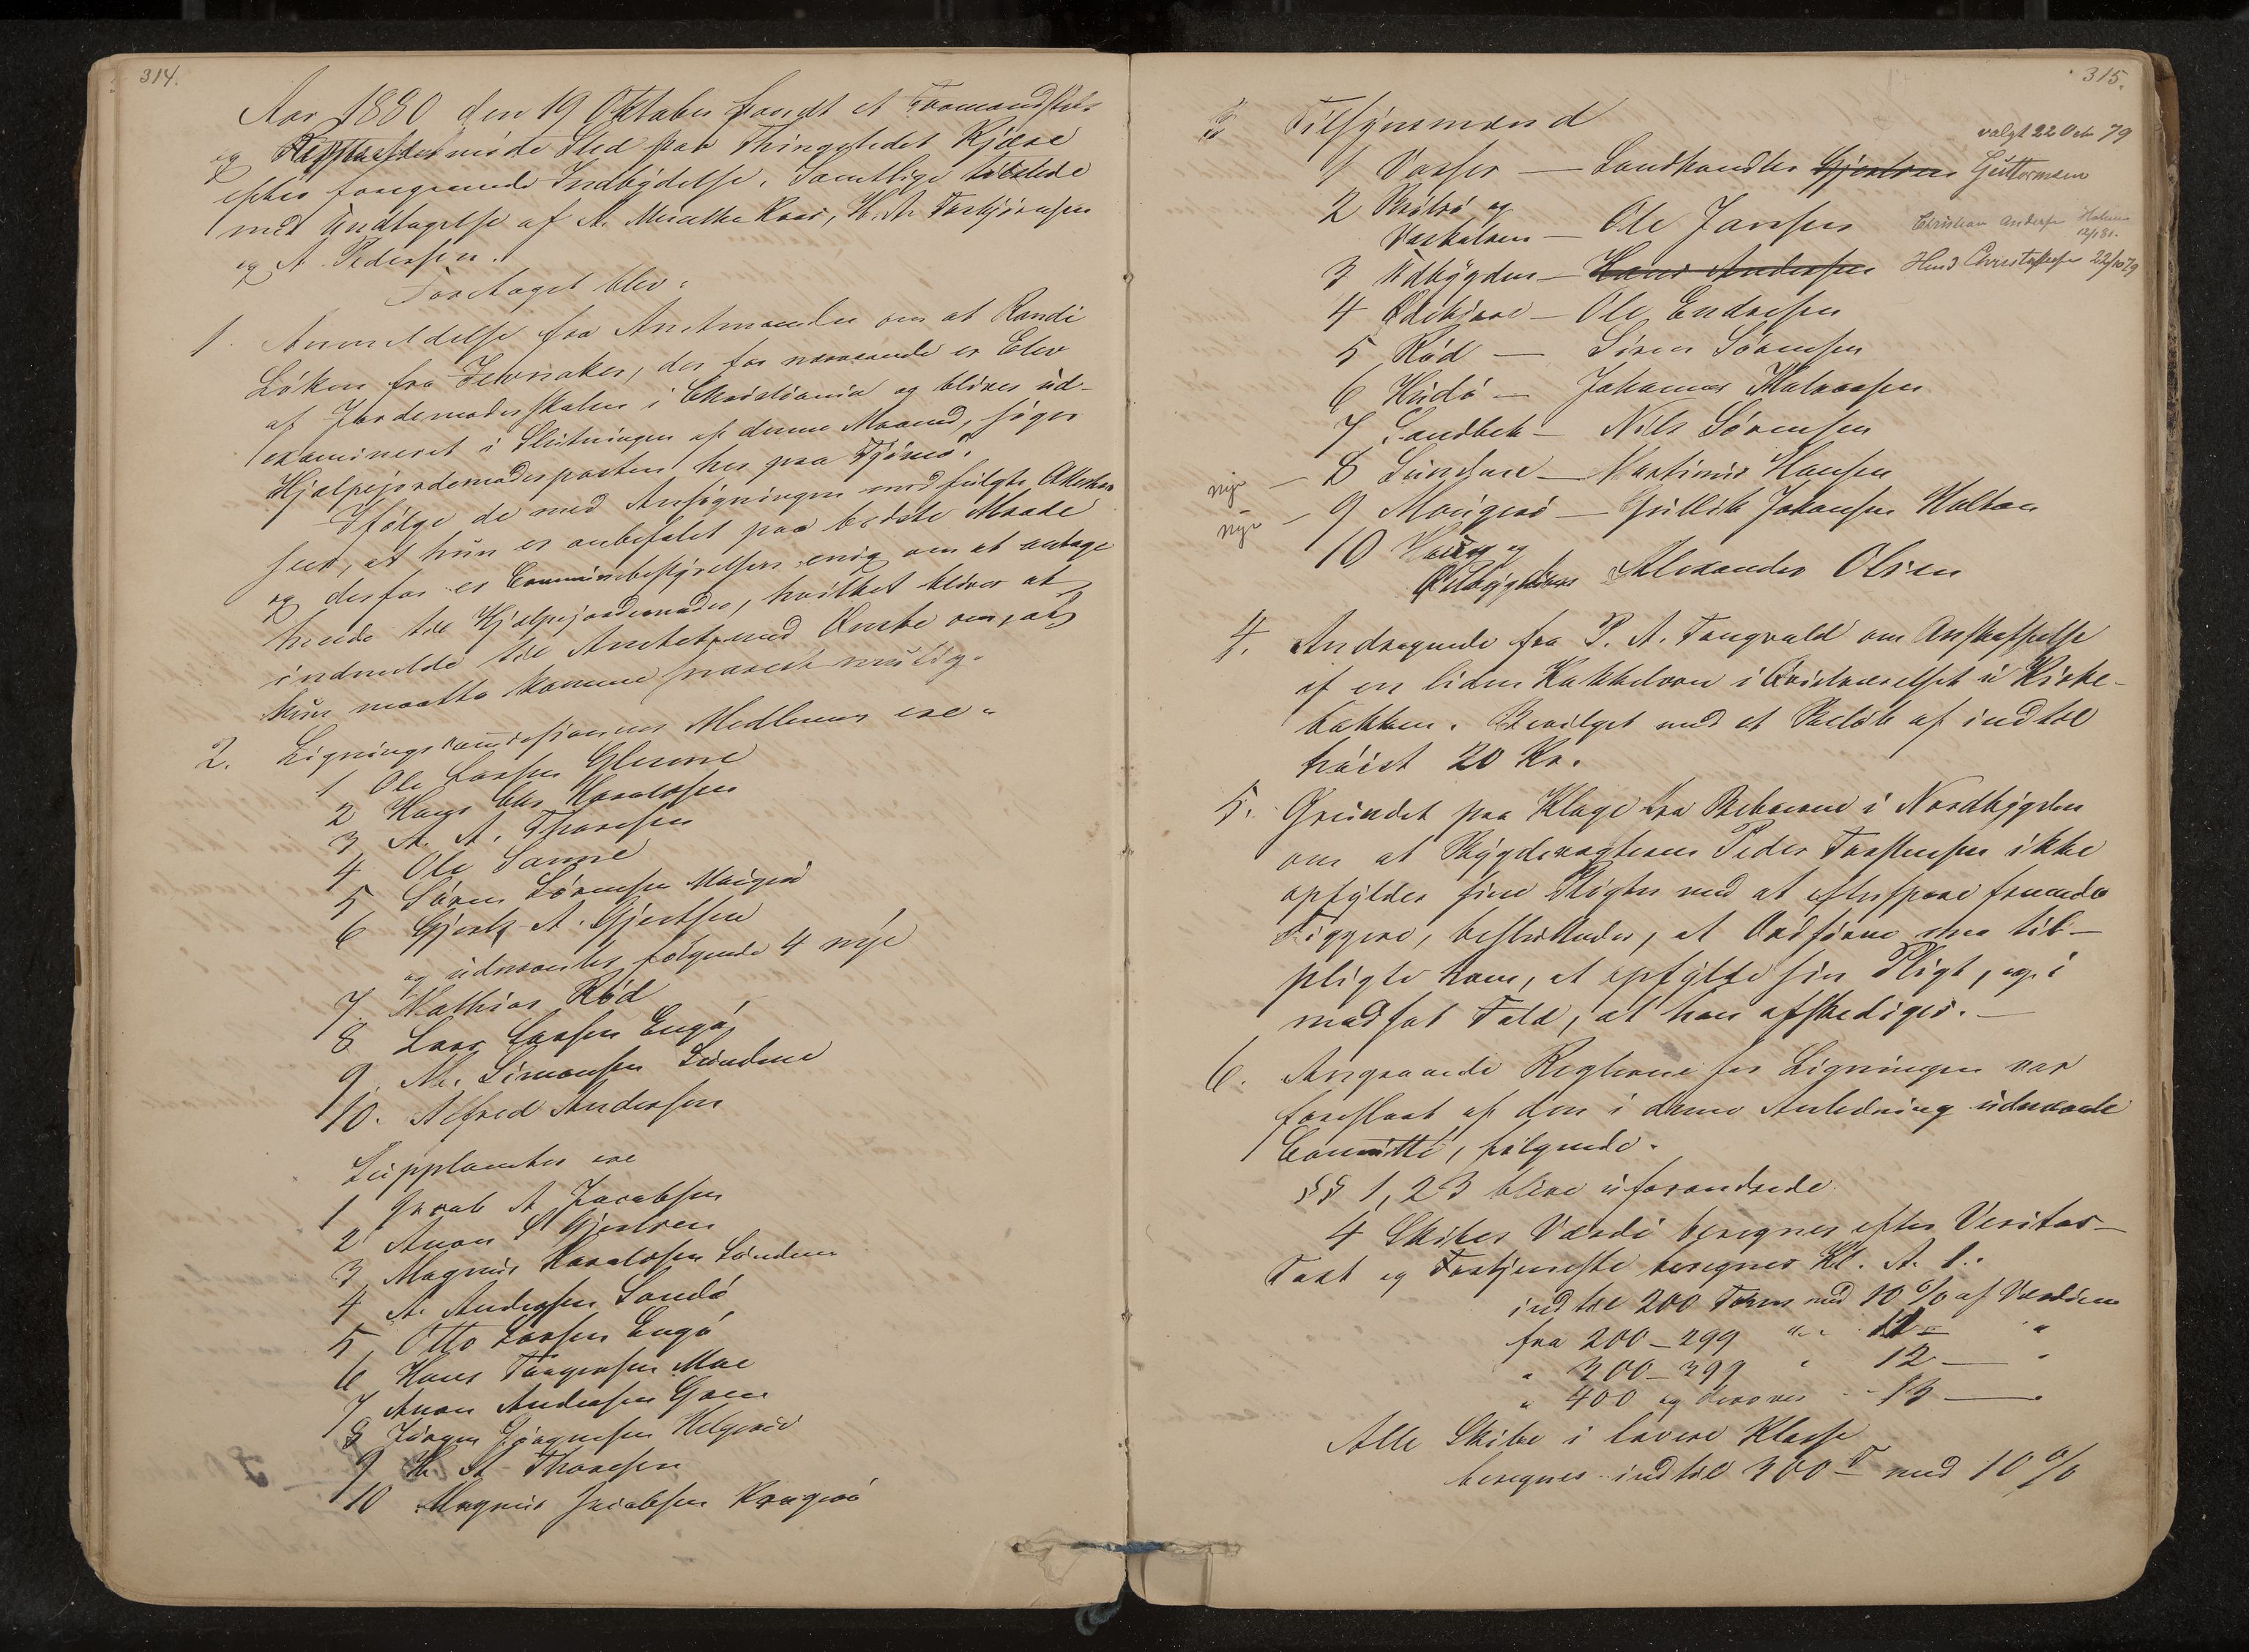 314.
Aar 1880 den 19 Oktober fandt et Formandskabs
og Repræsentmöde Sted paa Thingstedet Kjære
efter foregaaende Indbydelse. Samtlige tilstede
med Undtagelse af A. Kaas, H. A. Torkjörnsen
og A. Pedersen.
Foretaget blev:
1. Anmeldelse fra Amtmanden om at Randi
Löken fra Jevnaker, der for nærværende er Elev
af Jordemoderskolen i Christiania og bliver ud-
examineret i Slutningen af denne Maaned, söger
Hjælpejordemoderposten her paa Tjömö.
Ifölge de med Ansögningen medfulgte Attester
sees, at hun er anbefalet paa bedste Maade
og derfor er Communebestyrelsen enig om at antage
hende til Hjælpejordemoder, hvilket bliver at
indmelde til Amtet med Önske om, at
hun maatte komme snarest mulig.
2. Ligningskommissionens Medlemmer ere:
1 Ole Larsen Glenne
2 Hans Chr Haraldsen
3 A. A. Thoresen
4 Ole Sanne
5 Sören Sörensen Mögerö
6 Gjert A. Gjertsen
og udnævntes fölgende 4 nye
7. Mathias Röd
8 Lars Larsen Engö
9. M. Simonsen Sundene
10. Alfred Andersen
Supplanter ere
1 Jacob A Jacobsen
2 Anon S Gjertsen
3 Magnus Haraldsen Sundene
4 A. Andersen Sandö
5 Otto Larsen Engö
6 Hans Torgersen Moe
7 Anon Andersen Groen
8 Jörgen Jörgensen Helgerö
9 H. A. Thoresen
10 Magnus Jacobsen Krageö
315.
3 Tilsynsmænd
valgt 22 Oct 79
1 Vasser — Landhandler Gjertsen Guttormsen
2 Brötsö og
Vaskalven — Ole Jansen Christian Andersen Holmen 12/1 81.
3 Udbygden — Hans Andersen Hend Christoffersen 22/10 79
4 Ödekjære — Ole Endresen
5 Röd — Sören Sörensen
6 Hudö — Johannes Halvorsen
7 Sandbek — Nils Sörensen
nye — 8 Sundene — Martinius Hansen
nye — 9 Mögerö — Gullik Johansen Holtan
10 Haug og
Östbygden Alexander Olsen
4. Andragende fra P. A. Tangvald om Anskaffelse
af en liden Kakkelovn i Qvistværelset i Kirke-
bakken. Bevilget med et Beløb af indtil
höist 20 Kr.
5. Grundet paa Klage fra Beboerne i Nordbygden
om at Bygdevægteren Peder Torstensen ikke
opfylder sine Pligter med at efterspore fremmede
Tiggere, besluttedes, at Ordföreren maa til-
pligte ham, at opfylde sin Pligt, og i
modsat Fald, at han afskediges. —
6. Angaaende Reglerne for Ligningen var
foreslaat af den i denne Anledning udnævnte
Committé, fölgende:
§§ 1, 2 3 blive uforandrede.
4 Skibes Værdi beregnes efter Veritas-
Taxt og Fortjeneste beregnes Kl. A. 1.:
indtil 200 Tons med 10 % af Værdien
fra 200 — 299 " 11 — "
" 300 — 399 " 12 — "
" 400 og derover 13 —
Alle Skibe i lavere Klasse
beregnes indtil 300 T med 10 %